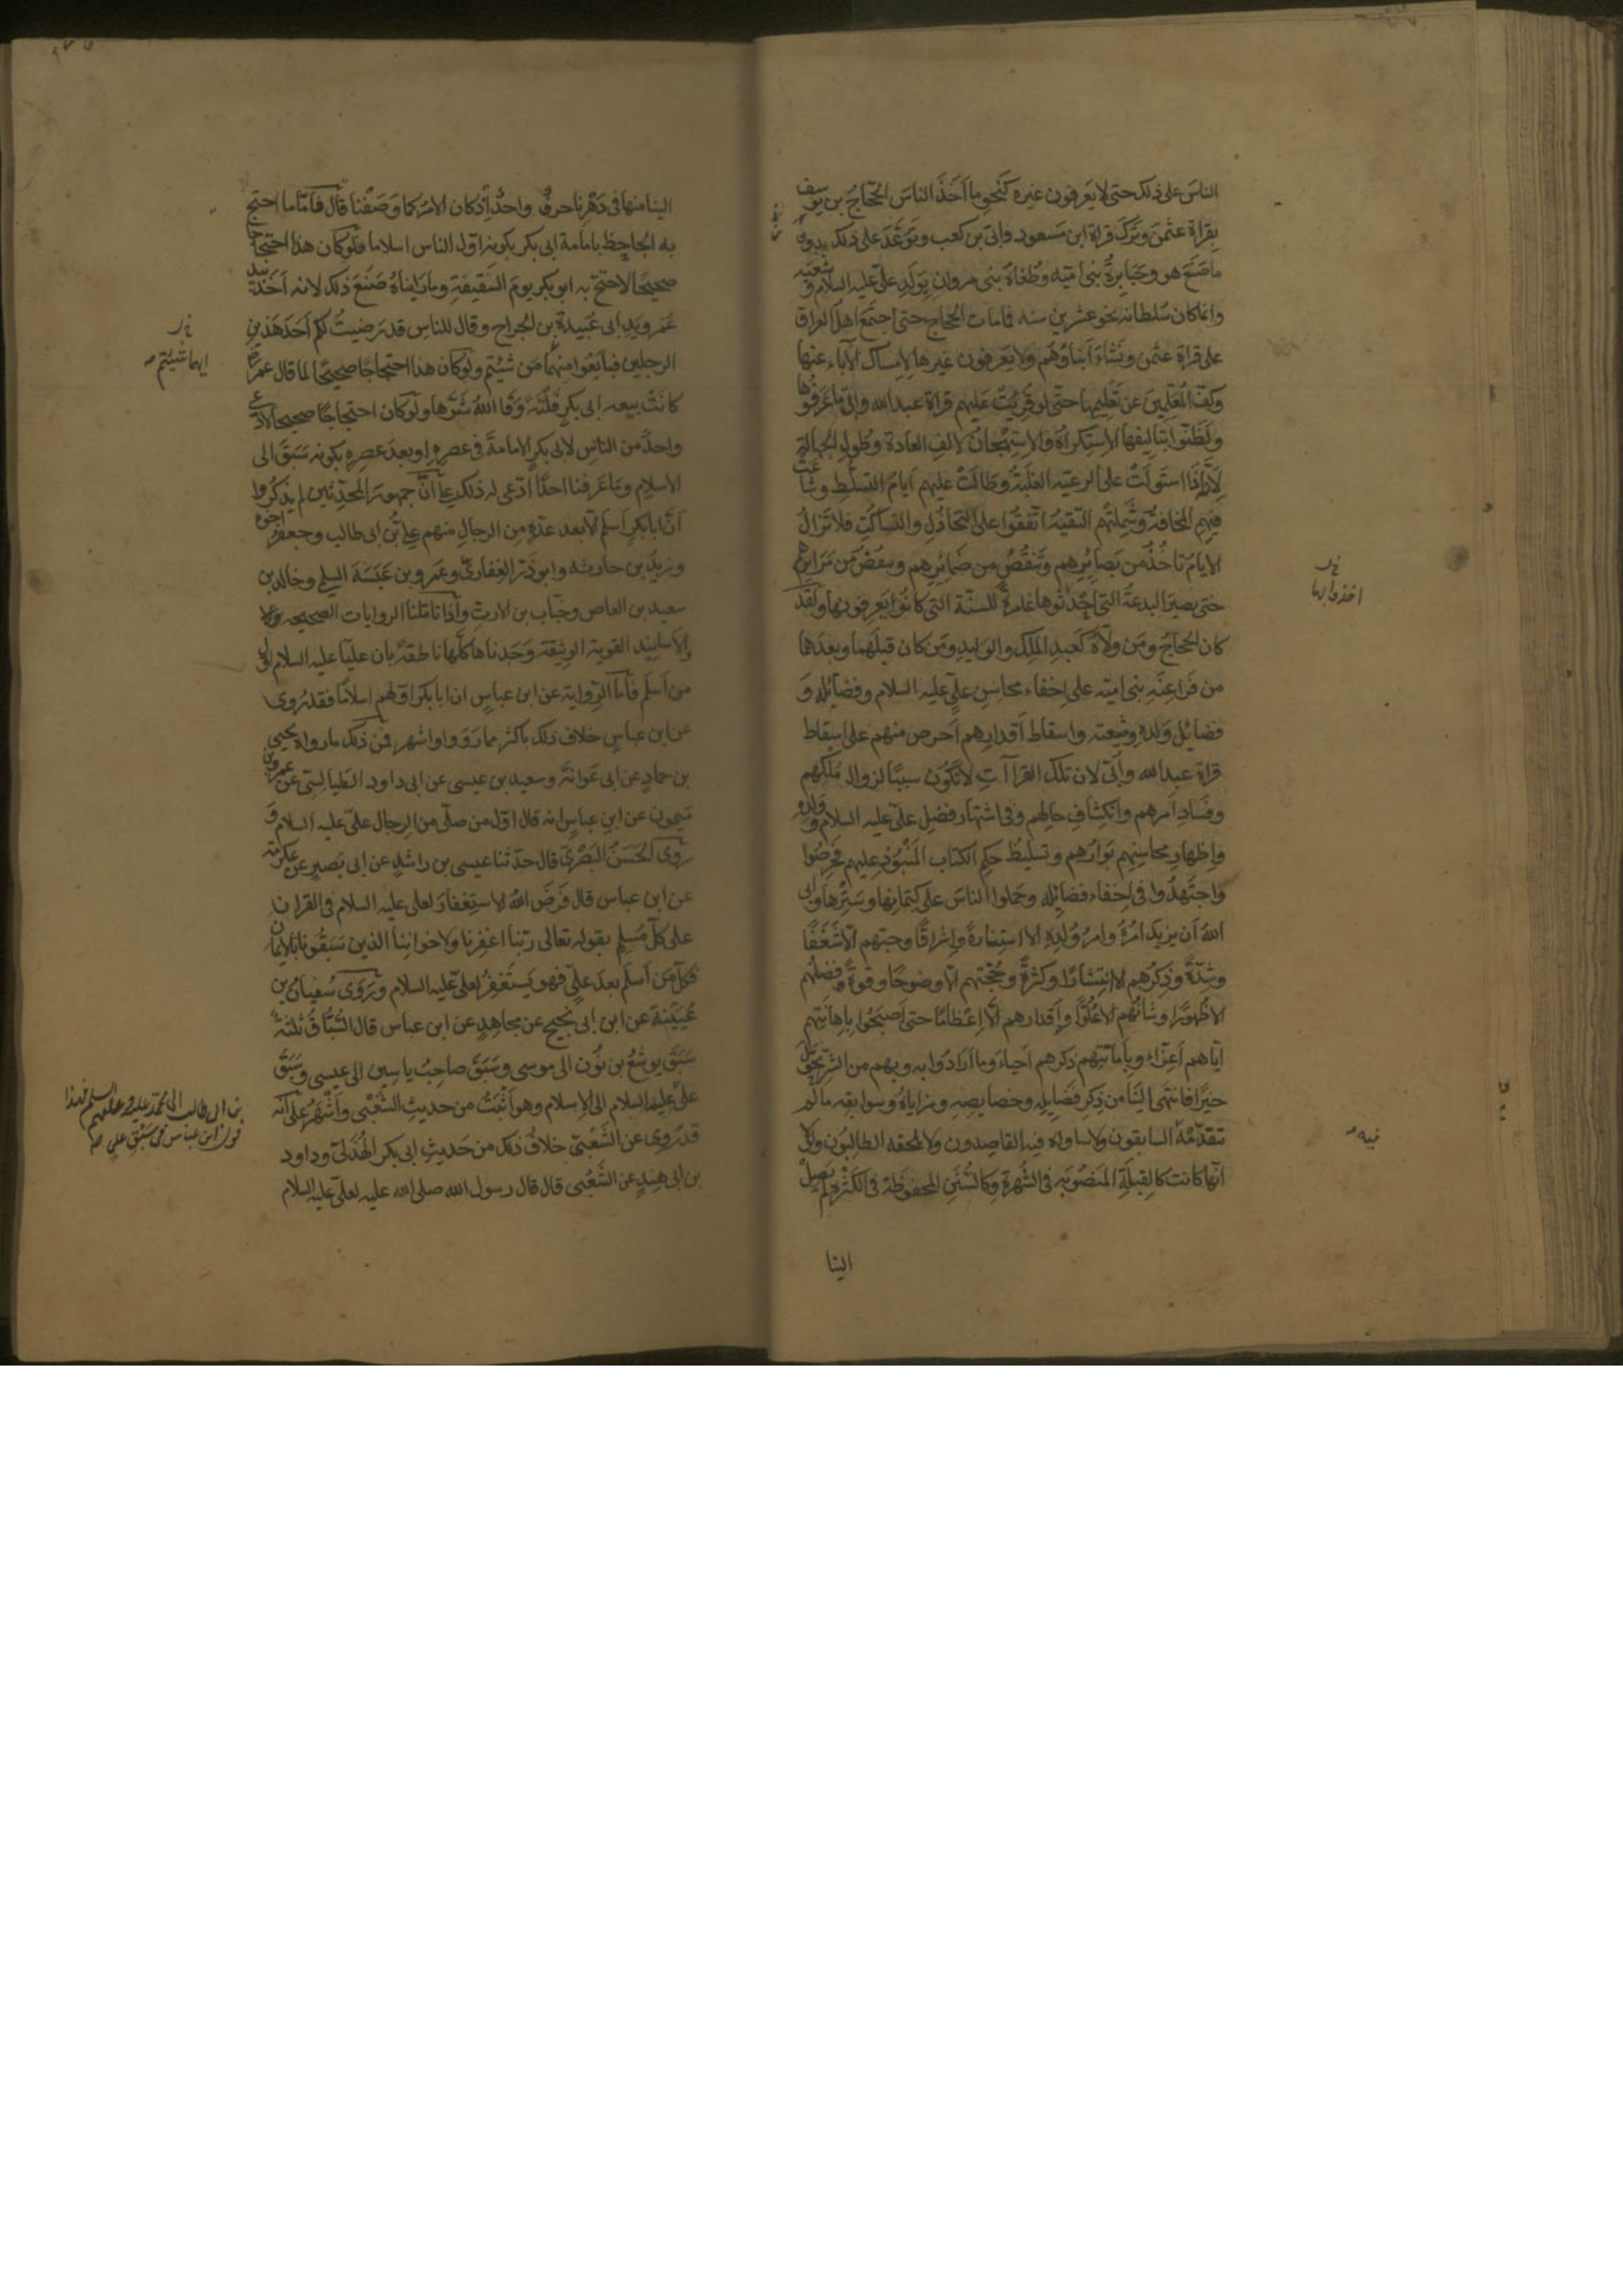 الناسَ على ذلك حتى لا يَعرفون غيره كنَحوِ ما اَخَذَ الناسَ الحجّاجُ بن يوسف
بقراةِ عثمٰن وتَرك قراةِ ابن مَسعود وابىّ بن كعب وتَوَعَّدَ على ذلك بدون
ما صَنَعَ هو وجَبابِرةُ بنى اميّه وطُغاةُ بنى مروان بِوَلَدِ علىٍّ عليه السلام وشيعته
وانما كان سُلطانه نحو عشرين سنه فما مات الحجاج حتى اجتَمَع اهلُ العراق
على قراة عثمٰن ونَشاءَ اَبناوُهُم ولا يَعرفون غيرها لامساك الآباء عنها
وكفّ المُعَلِّمينَ عن تَعليمها حتى لو قُرِئتْ عليهم قراةُ عبد الله وابىّ ما عَرَفُوها
ولَظَنّوا بتاليفها الاستكراه والاستهجانَ لالفِ العادة وطُولِ الجهالة
لانّه اذا استَولَتْ على الرعيّه الغلَبَةُ وطالَتْ عليهم اَيامُ التسلّط وشاعت
فيهم المخافةُ وشَمِلَتْهُم التقيّةُ اتّفقُوا على التخاذُلِ والتساكُتِ فلا تَزالُ
الايامُ تاخُذُ من بَصائِرِهم وتَنقُصُ من ضمائِرِهم وتنقُضُ من مَرائِرهم
حتى تصيرَ البدعةُ التى اَحدَثوها غامرةً للسنّة التى كانُوا يَعرِفونها ولقد
كان الحجّاجُ ومَن ولّاهُ كعبدِ المَلِك والوليدِ ومَن كان قبلَهُما وبعدَهُما
من فَراعِنَه بنى اميّه على اخفاء محاسنِ علىٍّ عليه السلام وفضائله و
فضائل وَلَدِه وشيعته واسقاط اَقدارِهم اَحرصَ منهم على اسقاط
قراة عبد الله واُبىّ لان تلك القراآتِ لا تكون سببًا لزوالِ مُلكِهم
وفَسادِ اَمرِهم وانكشافِ حالِهم وفى اشتهار فضلِ علىٍّ عليه السلام وولده
واِظهارِ محاسنِهم بَوارُهم وتسليطُ حكمِ الكتاب المَنبُوذ عليهم فحرصُوا
واجتَهدُوا فى اخفاء فضائله وحَملوا الناسَ على كِتمانها وسَترها واَبى
اللهُ اَن يزيدَ امرُهُ وامرُ وُلدِه الا استنارةً واِشراقًا وحبّهم الّا شَغَفًا
وشِدّةً وذِكرُهم الا انتِشارًا وكثرةً وحُجّتهم الّا وضوحًا وقوةً وفضلُهم
الا ظُهورًا وشانُهُم الا عُلُوًّا واَقدارُهم الّا اِعظامًا حتى اَصبَحُوا بِاِهانَتِهم
ايّاهم اَعِزّاءَ وبِاِماتَتِهم ذكرَهم احياءً وما اَرادُوا به وبهم من الشرِّ تحوّل
خيرًا فانتَهى الَينا من ذِكرِ فَضايلِه وخصايصِه ومزاياهُ وسوابقِه ما لَم
يَتَقدّمهُ السابقون ولا ساواه فيه القاصدون ولا يلحقه الطالبُون ولولا
انّها كانت كالقبلَةِ المَنصُوبه فى الشُهرة وكالسُنَنِ المحفوظة فى الكَثرة لم يَصِل
الينا
خ ل
اخذوا بها
فيه
الينا منها فى دَهرِنا حرفٌ واحدٌ اِذ كان الامرُ كما وَصَفنا قال فامّا ما احتجّ
به الجاحظ بامامة ابى بكر بكونه اوّل الناس اسلاما فلَو كان هذا احتجاجا
صحيحًا لاحتجّ به ابو بكر يومَ السَقيفةِ وما رَايناهُ صَنَعَ ذلك لانه اَخذ بيد
عُمَر ويدِ ابى عُبيدةَ بن الجراح وقال للناس قد رَضيتُ لكم اَحَدَ هٰذين
الرجلين فبايَعُوا منهُما مَن شِئتم ولَو كان هذا احتجاجًا صحيحًا لما قال عمر
كانَتْ بيعه ابى بكرٍ فَلْتَةً وَقا اللهُ شَرّها ولَو كان احتجاجًا صحيحا لادّعى
واحدٌ من الناسِ لابى بكرٍ الامامةَ فى عصرِه او بعدَ عصرِه بكونه سَبَقَ الى
الاسلام وما عَرفنا احدًا ادّعى له ذلك على اَنّ جمهورَ المحدّثين لم يذكُروا
اَنّ ابا بكرٍ اَسلَم الّا بعدَ عدّةٍ من الرجالِ منهم علىُّ بن ابى طالب وجعفرٌ اخوه
وزيدُ بن حارثه وابو ذَرّ الغِفارىّ وعَمرو بن عَبَسَةَ السلمى وخالد بن
سعيد بن العاص وخبّاب بن الارتّ واِذا تامّلنا الروايات الصحيحه
والاسانيد القويّة الوثيقة وَجدناها كلَّها ناطقةً بان عليًا عليه السلام اول
من اَسلَم فامّا الرّوايةُ عن ابن عباسٍ ان ابا بكرٍ اوّلهم اسلامًا فقد رُوى
عن ابن عباسٍ خلافُ ذلك باكثَر مما رَوَوا واشهر فمن ذلك ما رواه يحيى
بن حمادٍ عن ابى عَوانةَ وسعيدُ بن عيسى عن ابى داود الطيالسى عن عمرو بن
ميمون عن ابن عباسٍ انه قال اوّل من صلّى من الرجال علىٌّ عليه السلام و
روى الحَسَنُ البصرىّ قال حدّثنا عيسى بن راشدٍ عن ابى بَصيرٍ عن عكرمة
عن ابن عباس قال فَرَضَ اللهُ الاستغفارَ لعلى عليه السلام فى القران
على كلّ مُسلمٍ بقوله تعالى ربّنا اغفِر لنا ولاخواننا الذين سَبَقُونا بالايمان
فكلُّ مَن اَسلَم بعدَ علىٍّ فهو يَستَغفِرُ لعلىّ عليه السلام ورَوى سُفيانُ بن
عُيَينة عن ابن ابى نجيح عن مجاهدٍ عن ابن عباس قال السُبّاقُ ثلثةٌ
سَبَقَ يوشعُ بن نُون الى موسى وسَبَقَ صاحبُ ياسين الى عيسى وسَبَقَ
علىٌّ عليه السلام الى الاسلام وهو اَثبَتُ من حديثِ الشَعبى واَشهَرُ على اَنّه
قد رُوى عن الشَعبىّ خلافُ ذلك من حَديثِ ابى بكر الهُذلىّ وداود
بن ابى هِندٍ عن الشَعبى قال قال رسول الله صلى الله عليه لعلىّ عليه السلام
خ ل
ايهما شئتم
بن ابى طالب الى محمد عليه وعليهم السلم فهذا
قول ابن عباس فى سَبق على